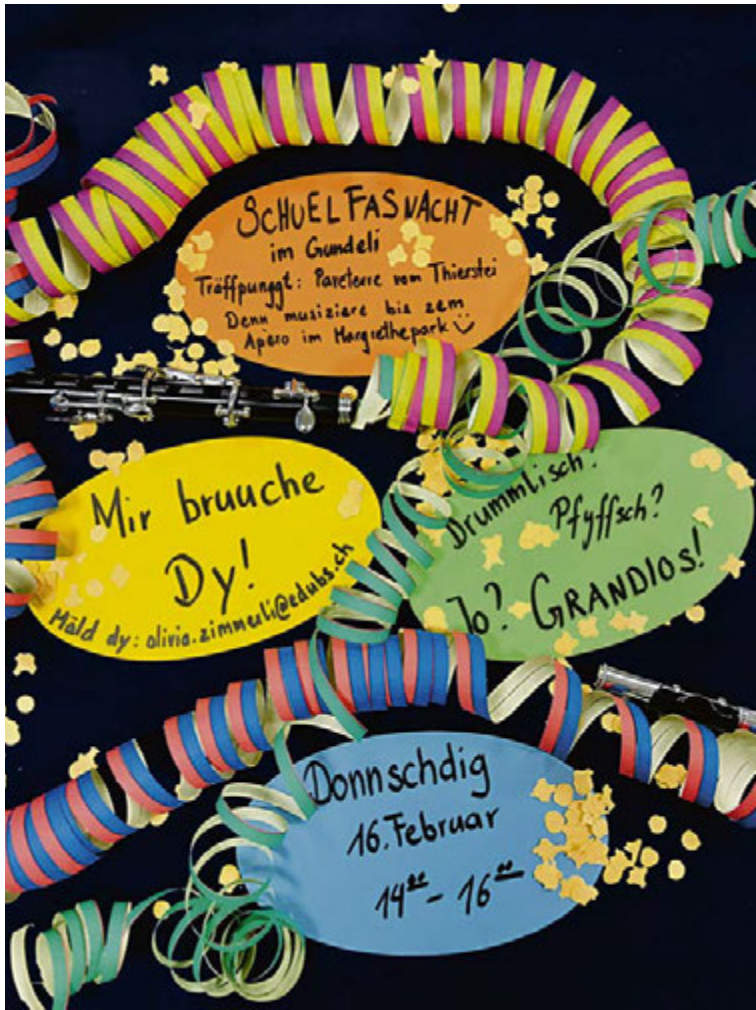 SCHUELFASNACHT
im Gundeli
Träffpunggt: Pareterre vom Thierstei
Denn musiziere bis zem
Apéro im Margrethepark
Mir bruuche
Dy!
Mäld dy: olivia.zimmerli@edubs.ch
Drummlisch?
Pfyffsch?
Jo? GRANDIOS!
Donnschdig
16. Februar
14⁰⁰ - 16⁰⁰